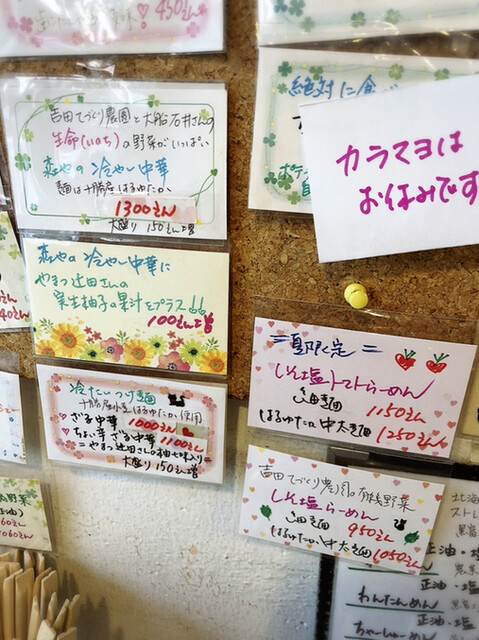 450えん
吉田てづくり農園と大船石井さんの
生命(いのち)の野菜がいっぱい
恋やの冷やし中華
麺は十勝産はるゆたか
1300えん
大盛り 150えん増
恋やの冷やし中華に
やまつ辻田さんの
実生柚子の果汁をプラス
100えん増
冷たいつけ麺
十勝産小麦はるゆたか使用
ざる中華 1000えん
ちょい辛ざる中華 1100えん
やまつ辻田さんの柚七味入り
大盛り 150えん増
絶対に食べ
カラマヨは
お休みです
夏限定
しん塩トマトらーめん
1150えん
はるゆたか中太麺
1250えん
吉田てづくり農園の有機野菜
しん塩らーめん
950えん
はるゆたか中太麺 1050えん
野菜
1060えん
北海
ストレ
正油・塩
正油・塩
わんたんめん
正油・塩
ちゃーしゅーめん